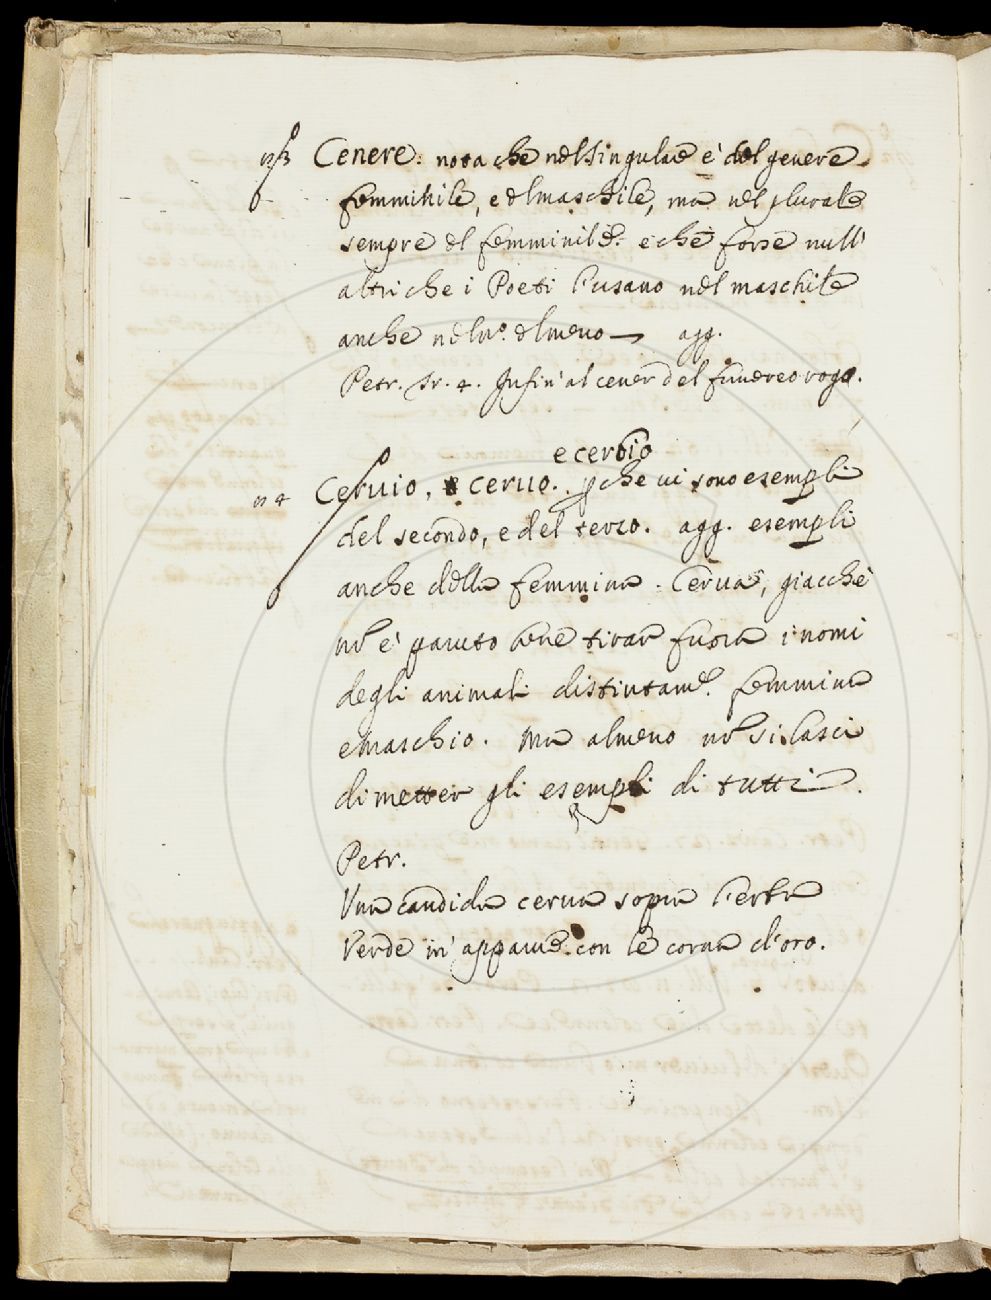 Cenere. nota che nel singulare è del genere
femminile, e del maschile, ma nel plurale
sempre del femminile. e che forse null'
altri che i Poeti l'usano nel maschile
anche nel nº. del meno — agg.
Petr. Infin' al cener del funereo rogo.
e cerbio
Cervio, e cervo. che vi sono esempli
del secondo, e del terzo. agg. esempli
anche della femmina. Cerva, giacchè
nō è paruto bene tirar fuora i nomi
degli animali distintamẽ. femmina
e maschio. Ma almeno nō si lasci
di metter gli esempli di tutti.
Petr.
Una candida cerva sopra l'erba
Verde m' apparve. con le corna d'oro.